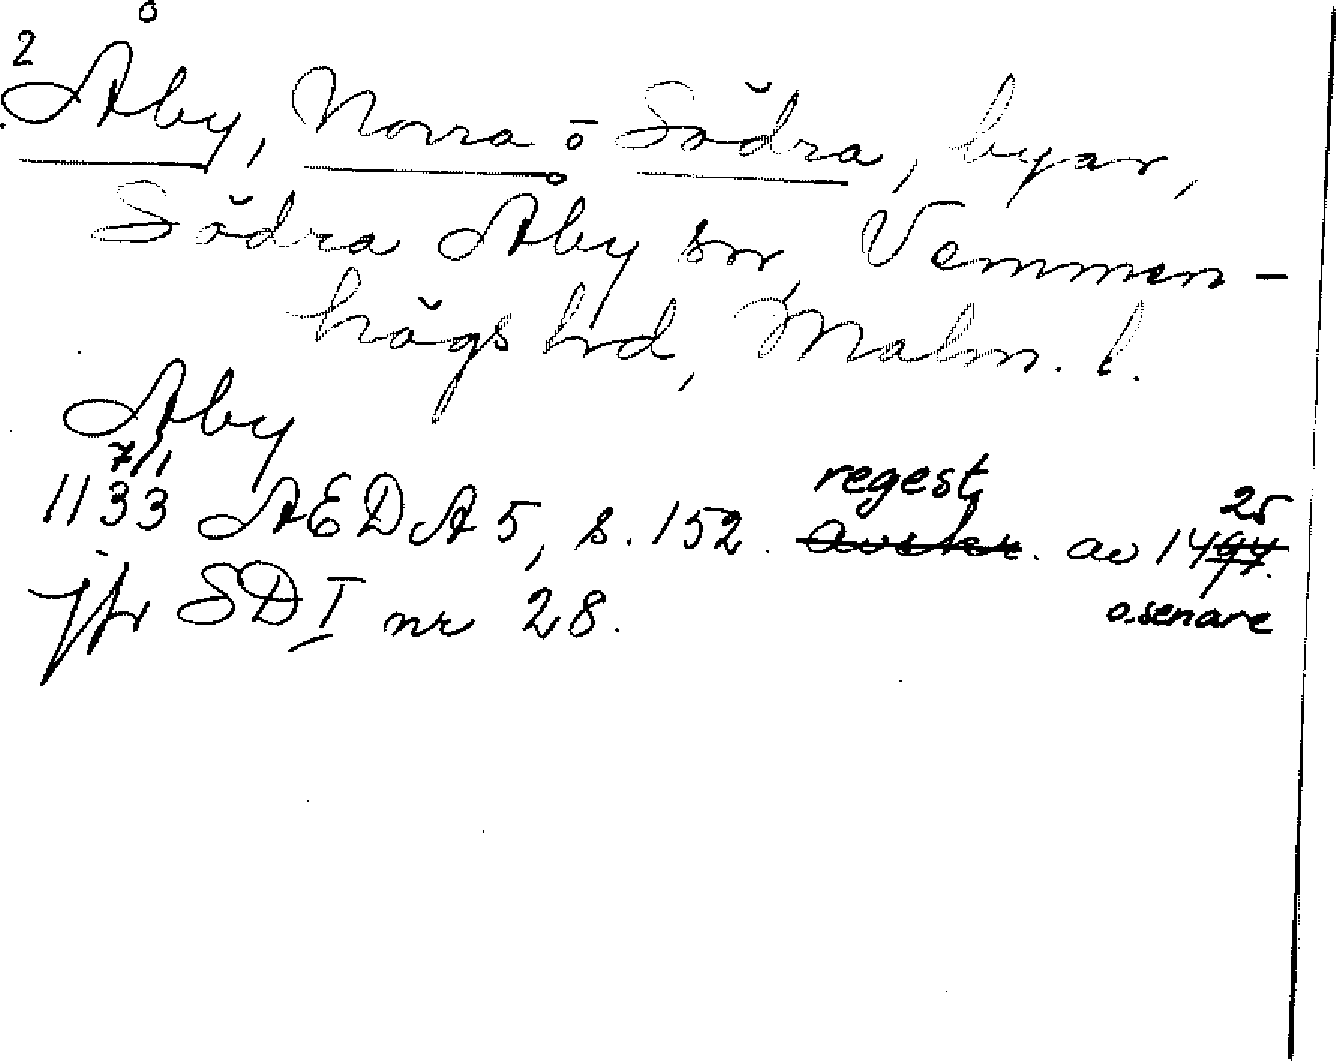 2
Åby, Norra o Södra, byar,
Södra Åby sn, Vemmen-
högs hrd, Malm. l.
Aby
7/1
1133 AEDA 5, s. 152. regest, avskr. av 1494. 25
o. senare
Jfr SD I nr 28.